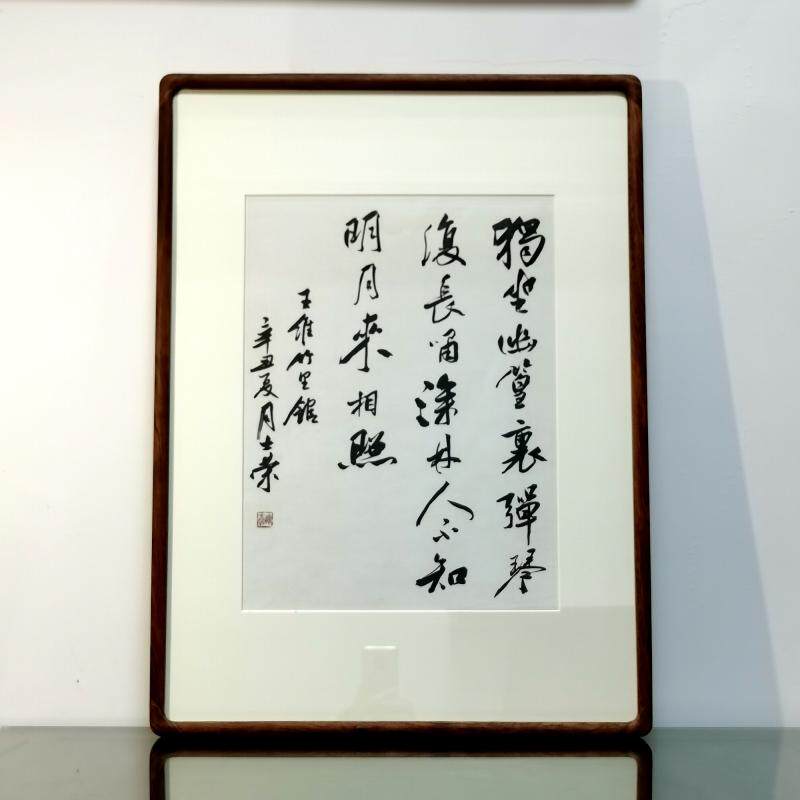 獨坐幽篁裏彈琴
復長嘯深林人不知
明月來相照
王維竹里館
辛丑夏月士榮